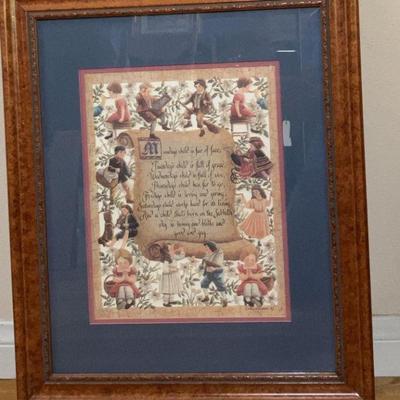 Monday's child is fair of face,
Tuesday's child is full of grace
Wednesday's child is full of woe,
Thursday's child has far to go,
Friday's child is loving and giving,
Saturday's child works hard for its living,
And a child that's born on the Sabbath
day is bonny and blithe and
good and gay.